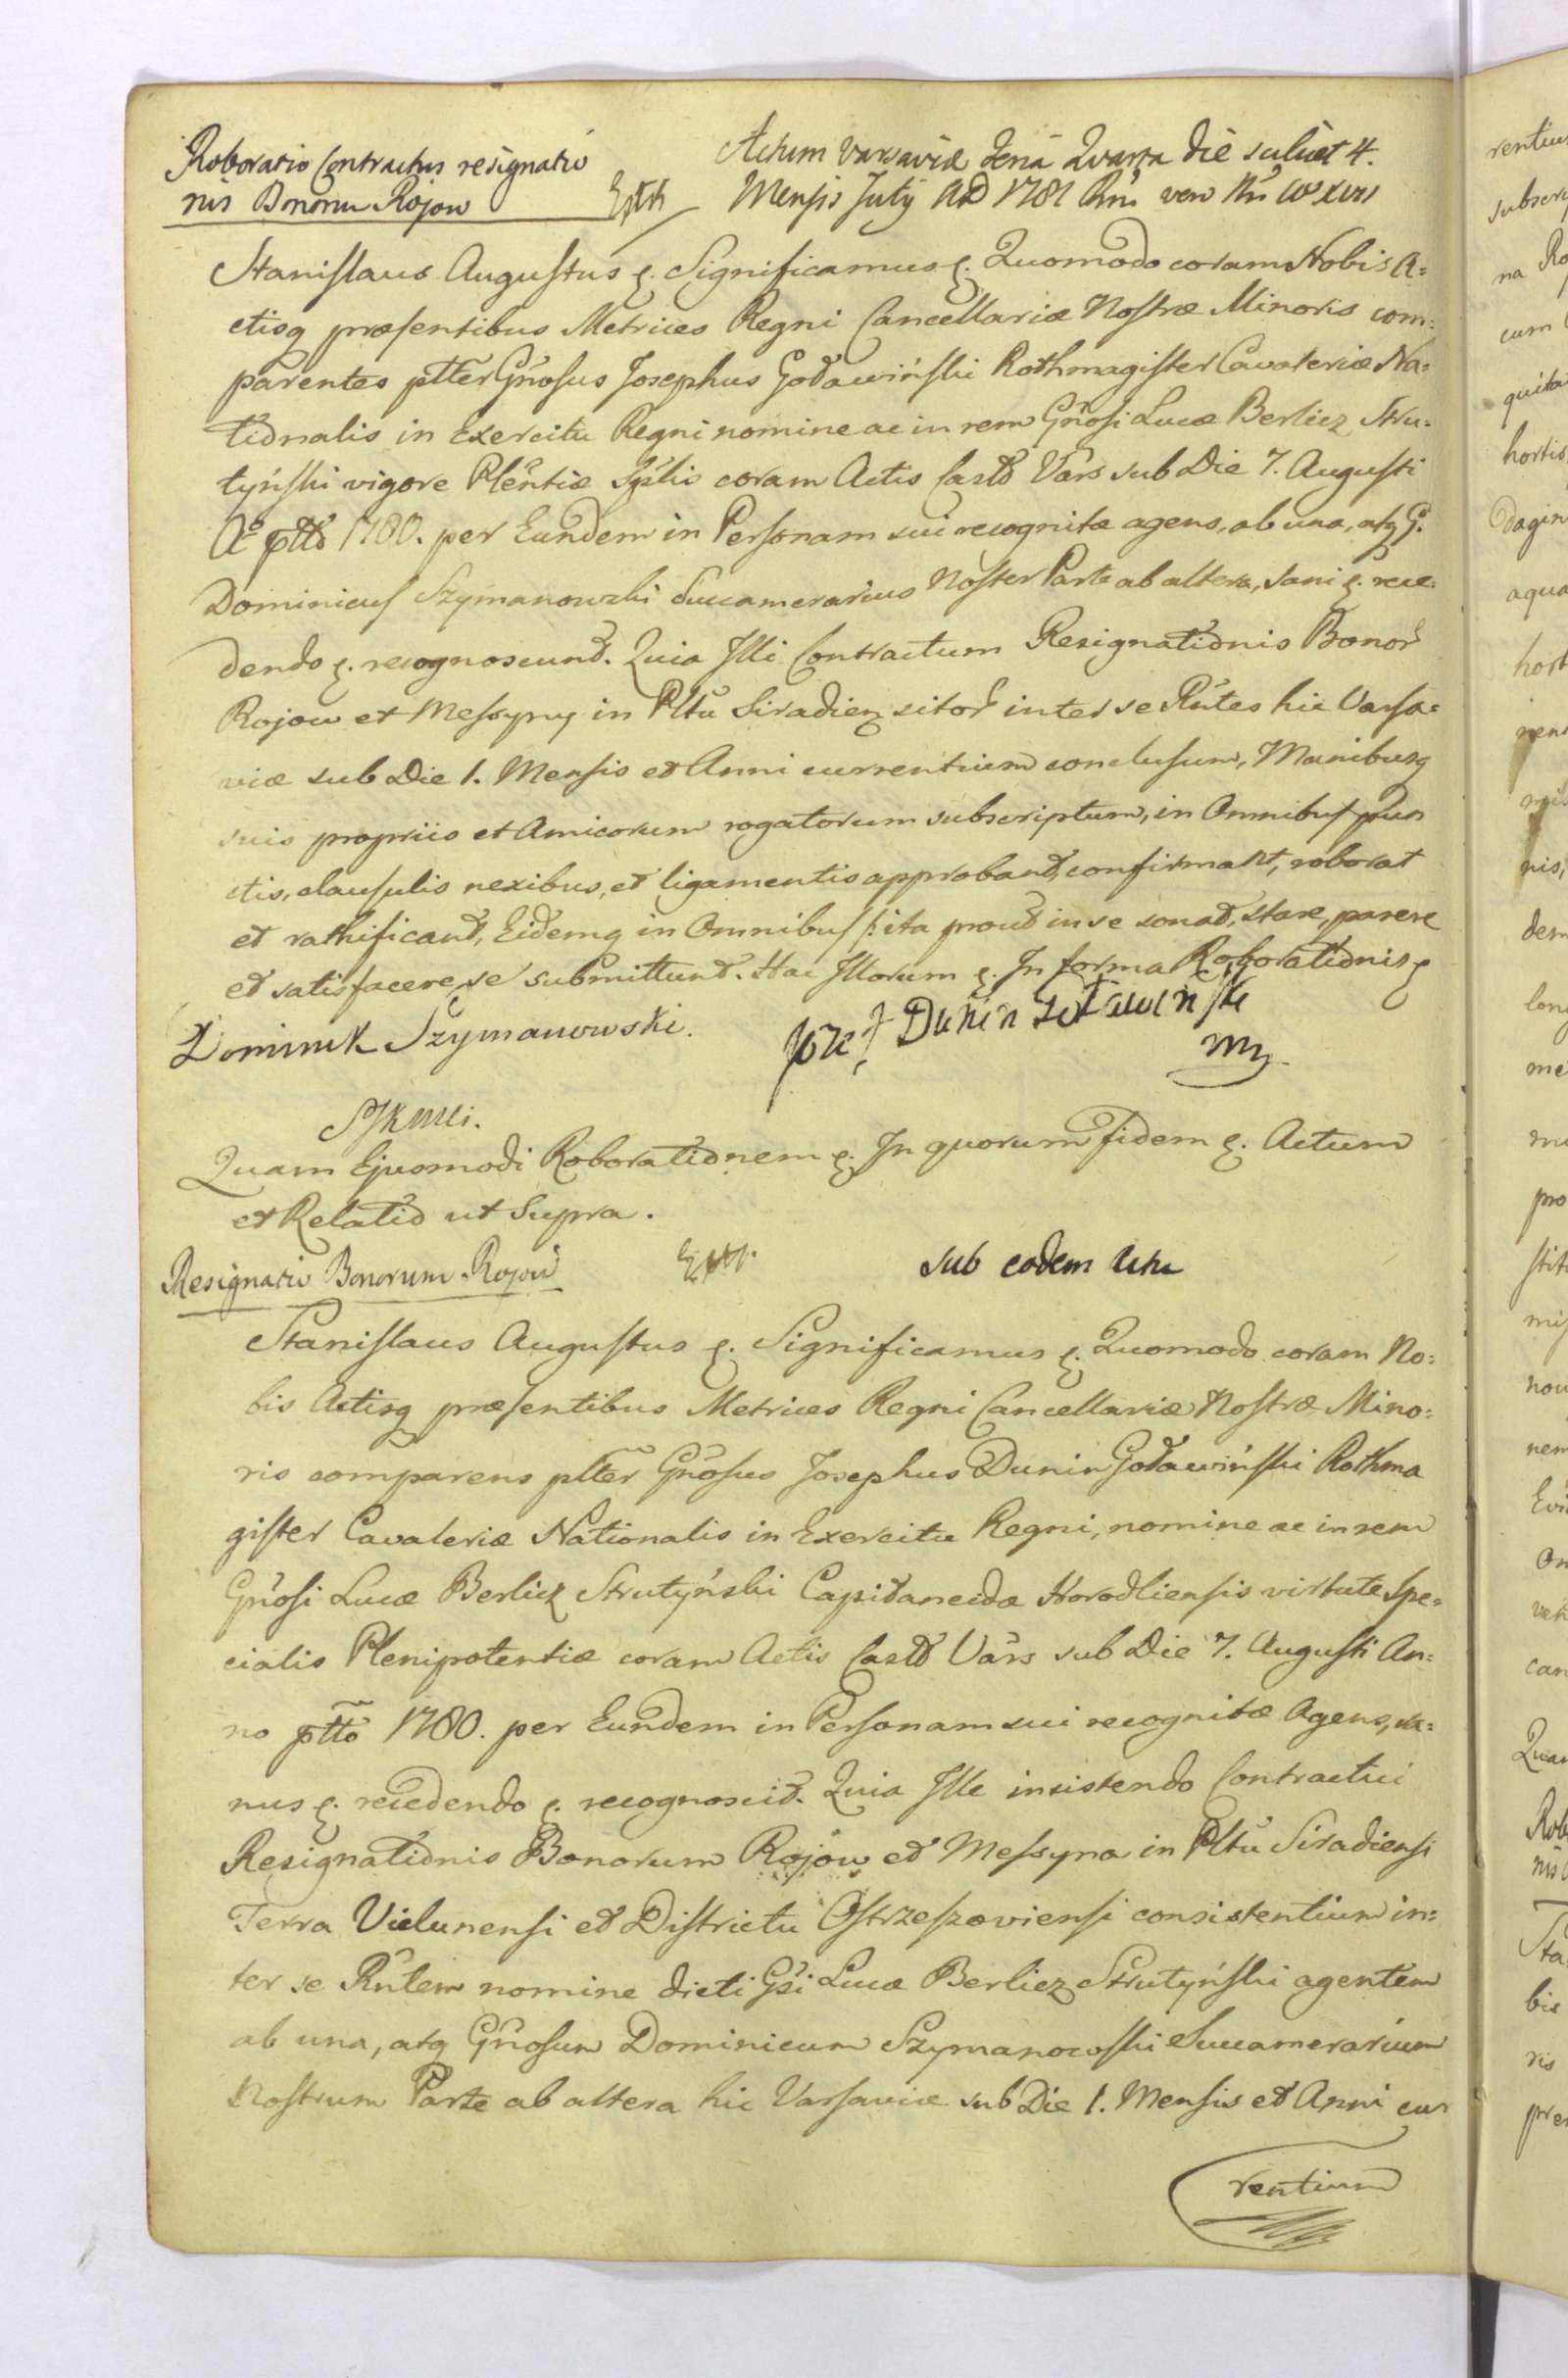 Roboratio Contractus resignatio
nis Bonorum Rojow Extr
Actum Varsaviæ Feria Quarta die scilicet 4.
Mensis July AD 1781
Stanislaus Augustus ę. Significamus ę. Quomodo coram Nobis A=
ctisq præsentibus Metrices Regni Cancellariæ Nostræ Minoris com=
parentes plter Gnosus Josephus Goławiński Rothmagister Cavaleriæ Na=
tionalis in Exercitu Regni nomine ac in rem Gnosi Lucæ Berlicz Stru=
tyński vigore Plentiæ Splis coram Actis Castr Vars sub Die 7. Augusti
Ao ptto 1780. per Eundem in Personam sui recognitæ agens, ab una, atq G.
Dominicus Szymanowski Succamerarius Noster Parte ab altera, sani ę. rece=
dendo ę. recognoscunt. Quia Illi Contractum Resignationis Bonor
Rojow et Messyny in Pltu Siradien sitor inter se Rntes hic Varsa=
viæ sub Die 1. Mensis et Anni currentium conclusum, Manibusq
suis propriis et Amicorum rogatorum subscriptum, in Omnibus pun
ctis, clausulis nexibus, et ligamentis approbant, confirmant, roborat
et rathificant, Eidemq in Omnibus ita prout in se sonat, stare, parere
et satisfacere, se submittunt. Hac Illorum ę. In forma Roborationis ę
Dominik Szymanowski. Józef Dunin Goławinski
mp.
Quam Ejusmodi Roborationem ę. In quorum fidem ę. Actum
et Relatio ut Supra.
Resignatio Bonorum Rojow Extr. Sub eodem Actu
Stanislaus Augustus ę. Significamus ę. Quomodo coram No=
bis Actisq præsentibus Metrices Regni Cancellariæ Nostræ Mino=
ris comparens plter Gnosus Josephus Dunin Goławiński Rothma
gister Cavaleriæ Nationalis in Exercitu Regni, nomine ac in rem
Gnosi Lucæ Berlicz Strutyński Capitaneidæ Horodliensis virtute Spe=
cialis Plenipotentiæ coram Actis Castr Vars sub Die 7. Augusti An=
no ptto 1780. per Eundem in Personam sui recognitæ Agens, sa=
nus ę. recedendo ę. recognoscit. Quia Ille insistendo Contractui
Resignationis Bonorum Rojow et Messyna in Pltu Siradiensi
Terra Vielunensi et Districtu Ostrzeszoviensi consistentium in=
ter se Rntem nomine dicti Gsi Lucæ Berlicz Strutyński agentem
ab una, atq Gnosum Dominicum Szymanowski Succamerarium
Nostrum Parte ab altera hic Varsaviæ sub Die 1. Mensis et Anni cur
rentium